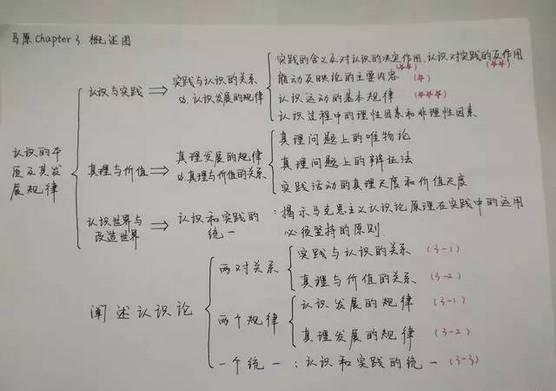 马原Chapter 3 概述图
认识的本质及其发展规律
认识与实践 ⇒ 实践与认识的关系及认识发展的规律
实践的含义及对认识的决定作用、认识对实践的反作用
(☆☆) (☆☆)
能动反映论的主要内容 (☆)
认识运动的基本规律 (☆☆☆)
认识过程中的理性因素和非理性因素
真理与价值 ⇒ 真理发展的规律及真理与价值的关系
真理问题上的唯物论
真理问题上的辩证法
实践活动的真理尺度和价值尺度
认识世界与改造世界 ⇒ 认识和实践的统一
:揭示马克思主义认识论原理在实践中的运用
必须坚持的原则
阐述认识论
两对关系
实践与认识的关系 (3-1)
真理与价值的关系 (3-2)
两个规律
认识发展的规律 (3-1)
真理发展的规律 (3-2)
一个统一:认识和实践的统一 (3-3)